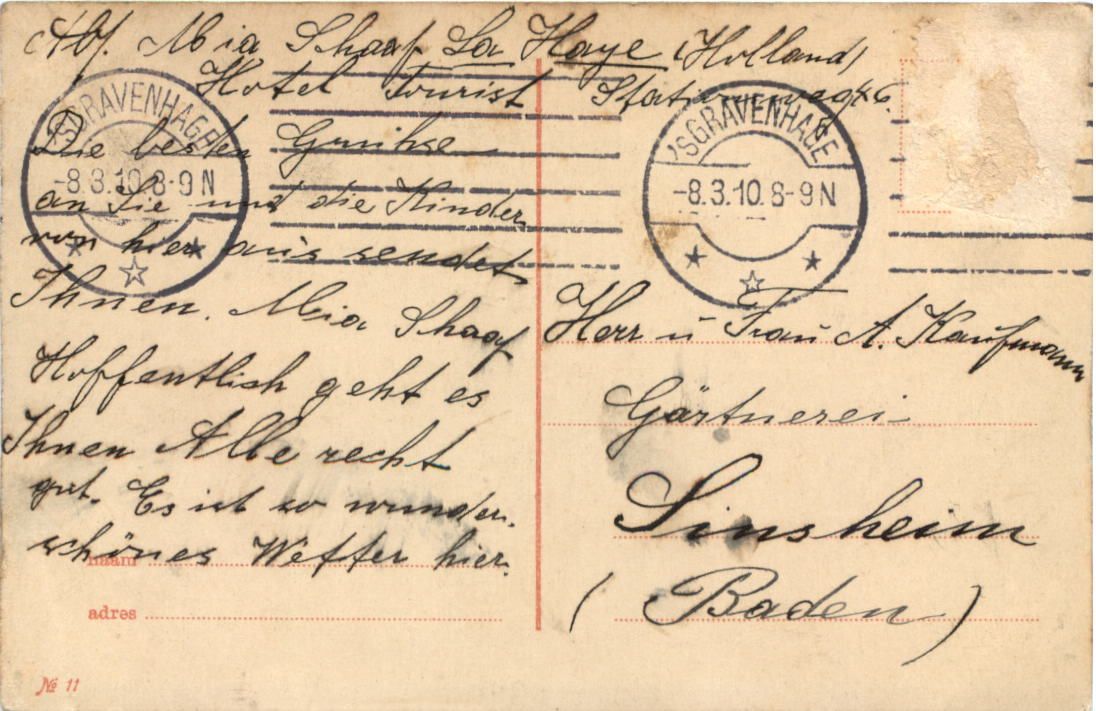 Abs. Mia Schaaf La Haye (Holland)
Hotel Tourist Stationsweg 46.
'SGRAVENHAGE
-8.3.10.8-9N
'SGRAVENHAGE
-8.3.10.8-9N
Die besten Grüße
an Sie und die Kinder
von hier aus sendet
Ihnen. Mia Schaaf
Hoffentlich geht es
Ihnen Alle recht
gut. Es ist so wunder-
schönes Wetter hier.
naam
adres
№ 11
Herr u Frau A. Kaufmann
Gärtnerei
Sinsheim
(Baden)